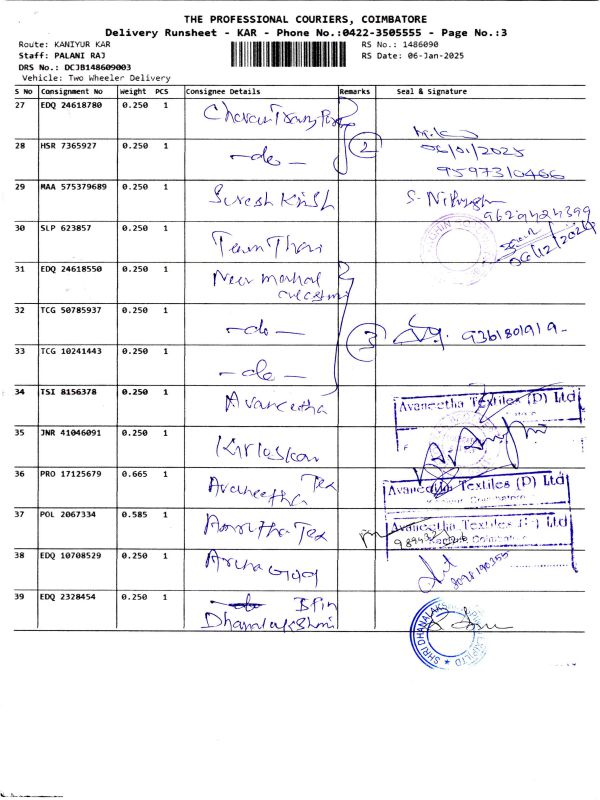 THE PROFESSIONAL COURIERS, COIMBATORE
Delivery Runsheet - KAR - Phone No.:0422-3505555 - Page No.:3
Route: KANIYUR KAR
RS No.: 1486090
Staff: PALANI RAJ
RS Date: 06-Jan-2025
DRS No.: DCJB148609003
Vehicle: Two Wheeler Delivery
S No Consignment No Weight PCS Consignee Details Remarks Seal & Signature
27 EDQ 24618780 0.250 1
28 HSR 7365927 0.250 1 -do- 2 06/01/2025
9597310466
29 MAA 575379689 0.250 1 Suresh Krish
9629424399
30 SLP 623857 0.250 1 Team Thai 06/12/2024
31 EDQ 24618550 0.250 1 New mahal
32 TCG 50785937 0.250 1 -do- 3 9361801919-
33 TCG 10241443 0.250 1 -do-
34 TSI 8156378 0.250 1 Avaneetha Avaneetha Textiles (P) Ltd
35 JNR 41046091 0.250 1 Kirloskar
36 PRO 17125679 0.665 1 Avaneetha Tex Avaneetha Textiles (P) Ltd
37 POL 2067334 0.585 1 Amrutha Tex Avaneetha Textiles (P) Ltd
38 EDQ 10708529 0.250 1 Archa
39 EDQ 2328454 0.250 1 Dhanalakshmi SHRI DHANALAKSHMI